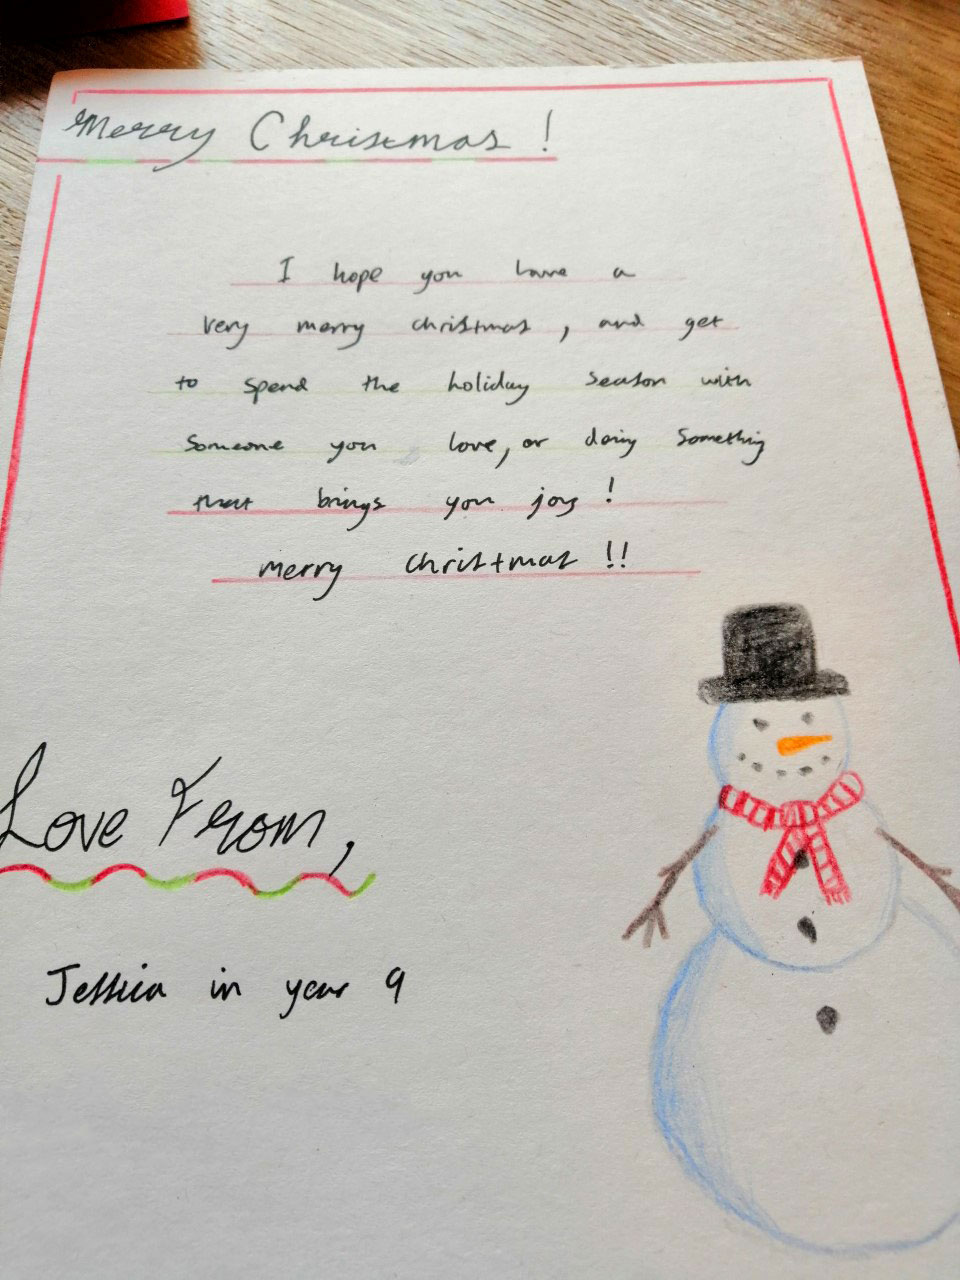 Merry Christmas !
I hope you have a
very merry christmas, and get
to spend the holiday season with
someone you love, or doing something
that brings you joy !
merry christmas !!
Love From,
Jessica in year 9